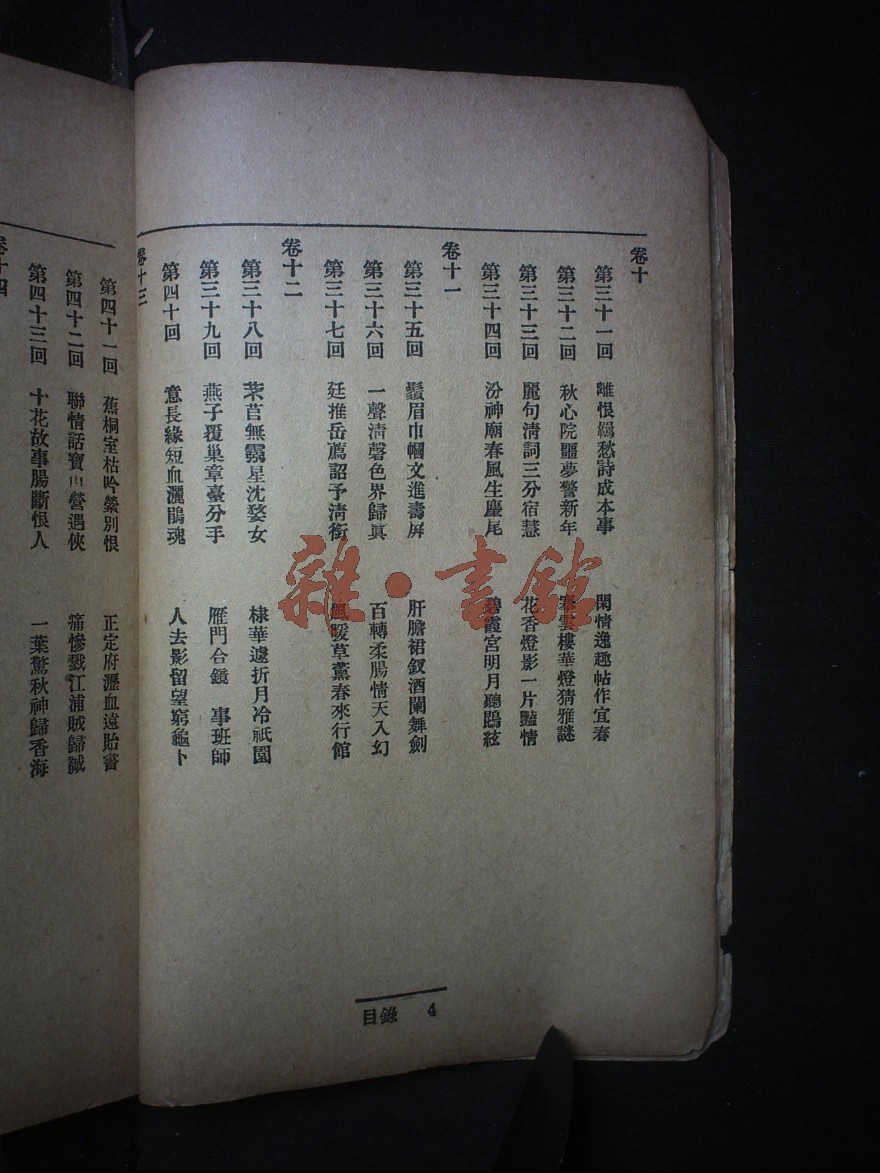 卷十
第三十一回 離恨羈愁詩成本事 閑情逸趣帖作宜春
第三十二回 秋心院噩夢警新年 雲樓華燈猜雅謎
第三十三回 麗句清詞三分宿慧 花香燈影一片豔情
第三十四回 汾神廟春風生麈尾 碧霞宮明月聽鵾絃
卷十一
第三十五回 鬚眉巾幗文進壽屏 肝膽裙釵酒闌舞劍
第三十六回 一聲清磬色界歸眞 百轉柔腸情天入幻
第三十七回 廷推岳薦詔予清銜 風暖草薰春來行館
卷十二
第三十八回 芣苢無靈星沈婺女 棣華遽折月冷祇園
第三十九回 燕子覆巢章臺分手 雁門合鏡 事班師
第四十回 意長緣短血灑鵑魂 人去影留望窮龜卜
卷十三
第四十一回 蕉桐室枯吟縈別恨 正定府瀝血遠貽書
第四十二回 聯情話寶山營遇俠 痛慘戮江浦賊歸誠
第四十三回 十花故事腸斷恨人 一葉驚秋神歸香海
卷十四
目錄 4
雜·書館